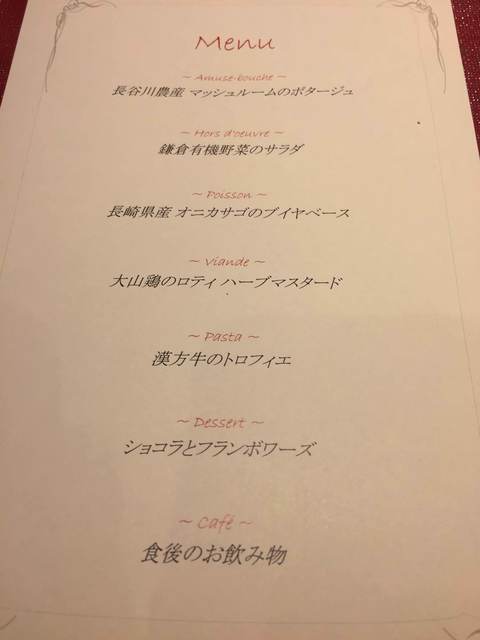 Menu
~ Amuse-bouche ~
長谷川農産 マッシュルームのポタージュ
~ Hors d'oeuvre ~
鎌倉有機野菜のサラダ
~ Poisson ~
長崎県産 オニカサゴのブイヤベース
~ Viande ~
大山鶏のロティ ハーブマスタード
~ Pasta ~
漢方牛のトロフィエ
~ Dessert ~
ショコラとフランボワーズ
~ Café ~
食後のお飲み物